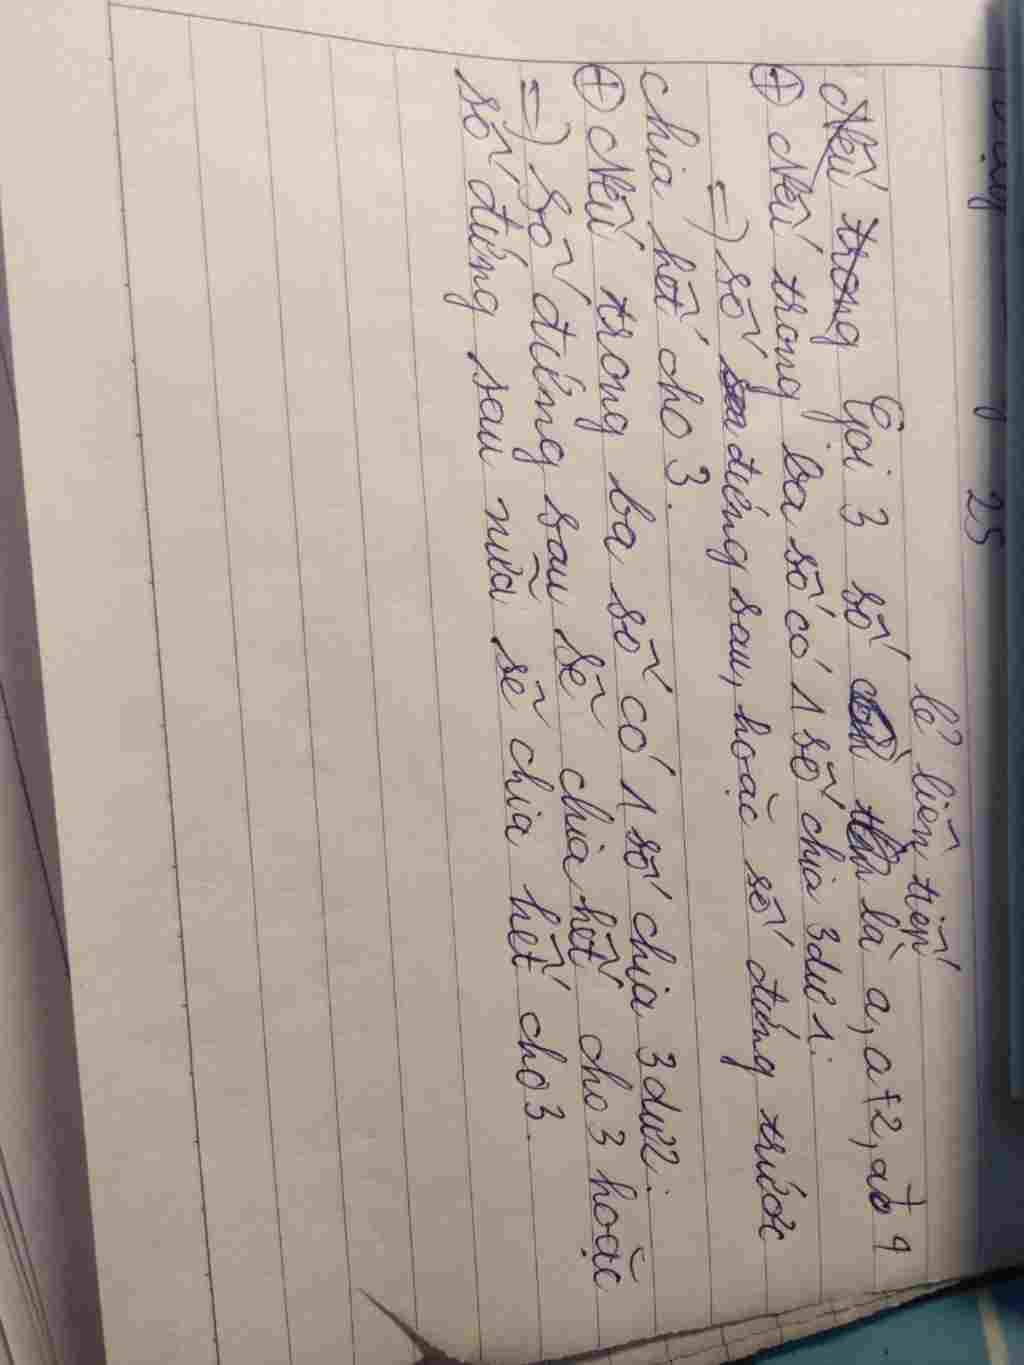 25
lẻ liên tiếp
Nếu trong Gọi 3 số là a, a+2, a+4
⊕ Nếu trong ba số có 1 số chia 3 dư 1.
=) số đứng sau, hoặc số đứng trước
chia hết cho 3.
⊕ Nếu trong ba số có 1 số chia 3 dư 2.
=) Số đứng sau sẽ chia hết cho 3 hoặc
số đứng sau nữa sẽ chia hết cho 3.